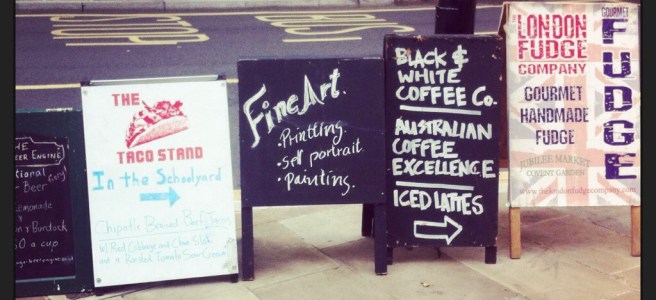 THE
BEER ENGINE
Beer
Lemonade
n Burdock
50 a cup
THE
TACO STAND
In the Schoolyard
Chipotle Braised Beef Tacos
w/ Red Cabbage and Chian Slaw
and a Roasted Tomato Sour Cream
Fine Art.
• Printting.
• Self portrait
• Painting.
BLACK &
WHITE
COFFEE Co.
AUSTRALIAN
COFFEE
EXCELLENCE
ICED LATTES
THE
LONDON
FUDGE
COMPANY
GOURMET
HANDMADE
FUDGE
JUBILEE MARKET
COVENT GARDEN
www.thelondonfudgecompany.com
GOURMET
FUDGE